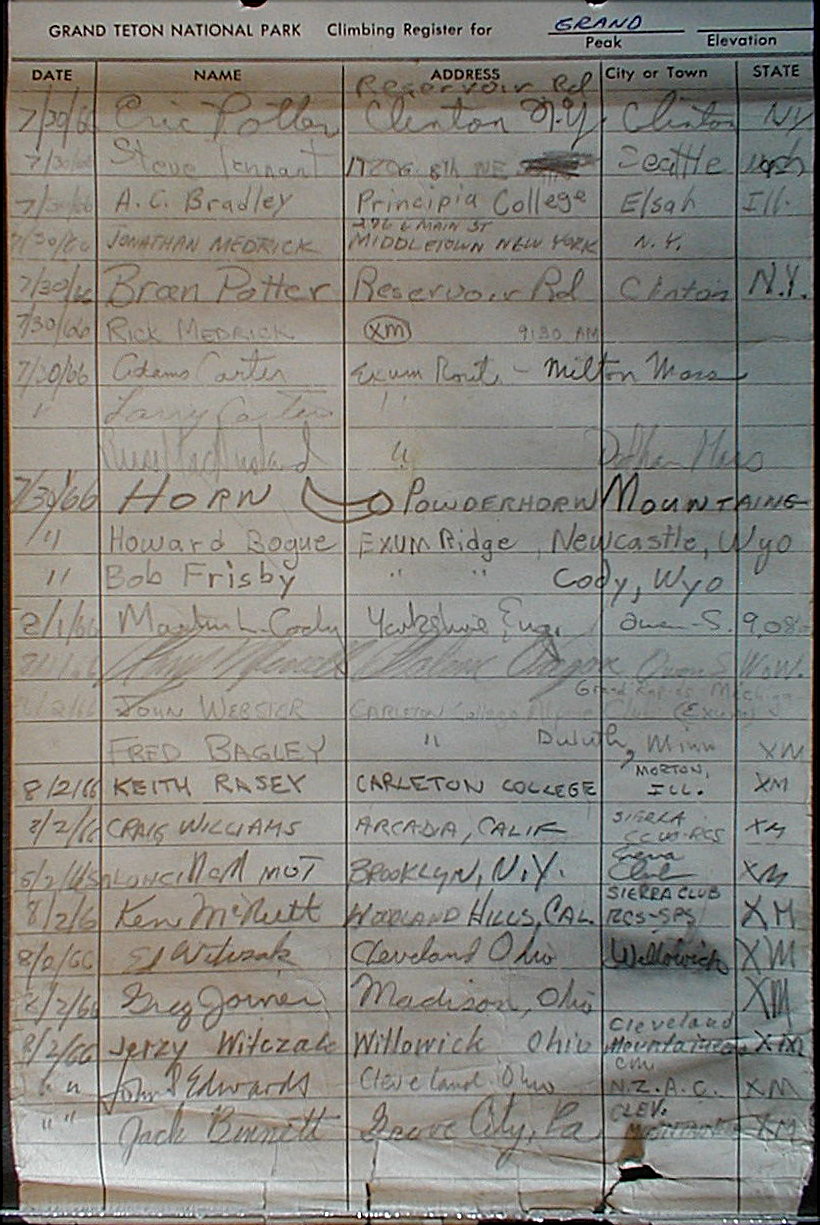 GRAND TETON NATIONAL PARK Climbing Register for GRAND
Peak Elevation
DATE NAME ADDRESS City or Town STATE
Reservoir Rd
7/30/66 Eric Potter Clinton N.Y. Clinton NY
7/30/66 Steve Tennant 17206 8th NE Seattle Wash
7/30/66 A.C. Bradley Principia College Elsah Ill.
MAIN ST
7/30/66 JONATHAN MEDRICK MIDDLETOWN NEW YORK N.Y.
7/30/66 Potter Reservoir Rd Clinton N.Y.
7/30/66 RICK MEDRICK XM 9:30 AM
7/30/66 Adams Carter Exum Route - Milton Mass
" Larry Carter "
" Mass
7/30/66 HORN POWDERHORN MOUNTAINS
" Howard Bogue EXUM Ridge, Newcastle, Wyo
" Bob Frisby " " Cody, Wyo
8/1/66 Martin L. Cody Yorkshire, Eng. Owen-S.
Owen S
Grand Rapids Michigan
8/2/66 JOHN WEBSTER CARLETON College Alpine Club (Exum)
FRED BAGLEY " Duluth, Minn XM
MORTON,
8/2/66 KEITH RASEY CARLETON COLLEGE ILL. XM
SIERRA
8/2/66 CRAIG WILLIAMS ARCADIA, CALIF CLUB-RCS XM
Sierra
MOT BROOKLYN, N.Y. Club XM
SIERRA CLUB
8/2/6 Ken McNutt WOODLAND HILLS, CAL. RCS-SPS XM
Ed Witczak Cleveland Ohio Willowick XM
8/2/66 Greg Joiner Madison, Ohio XM
Cleveland
8/2/66 Jerzy Witczak Willowick Ohio Mountaineers XM
cm
" " John S Edwards Cleveland Ohio N.Z.A.C. XM
CLEV.
" " Jack Bennett Grove City, Pa. XM